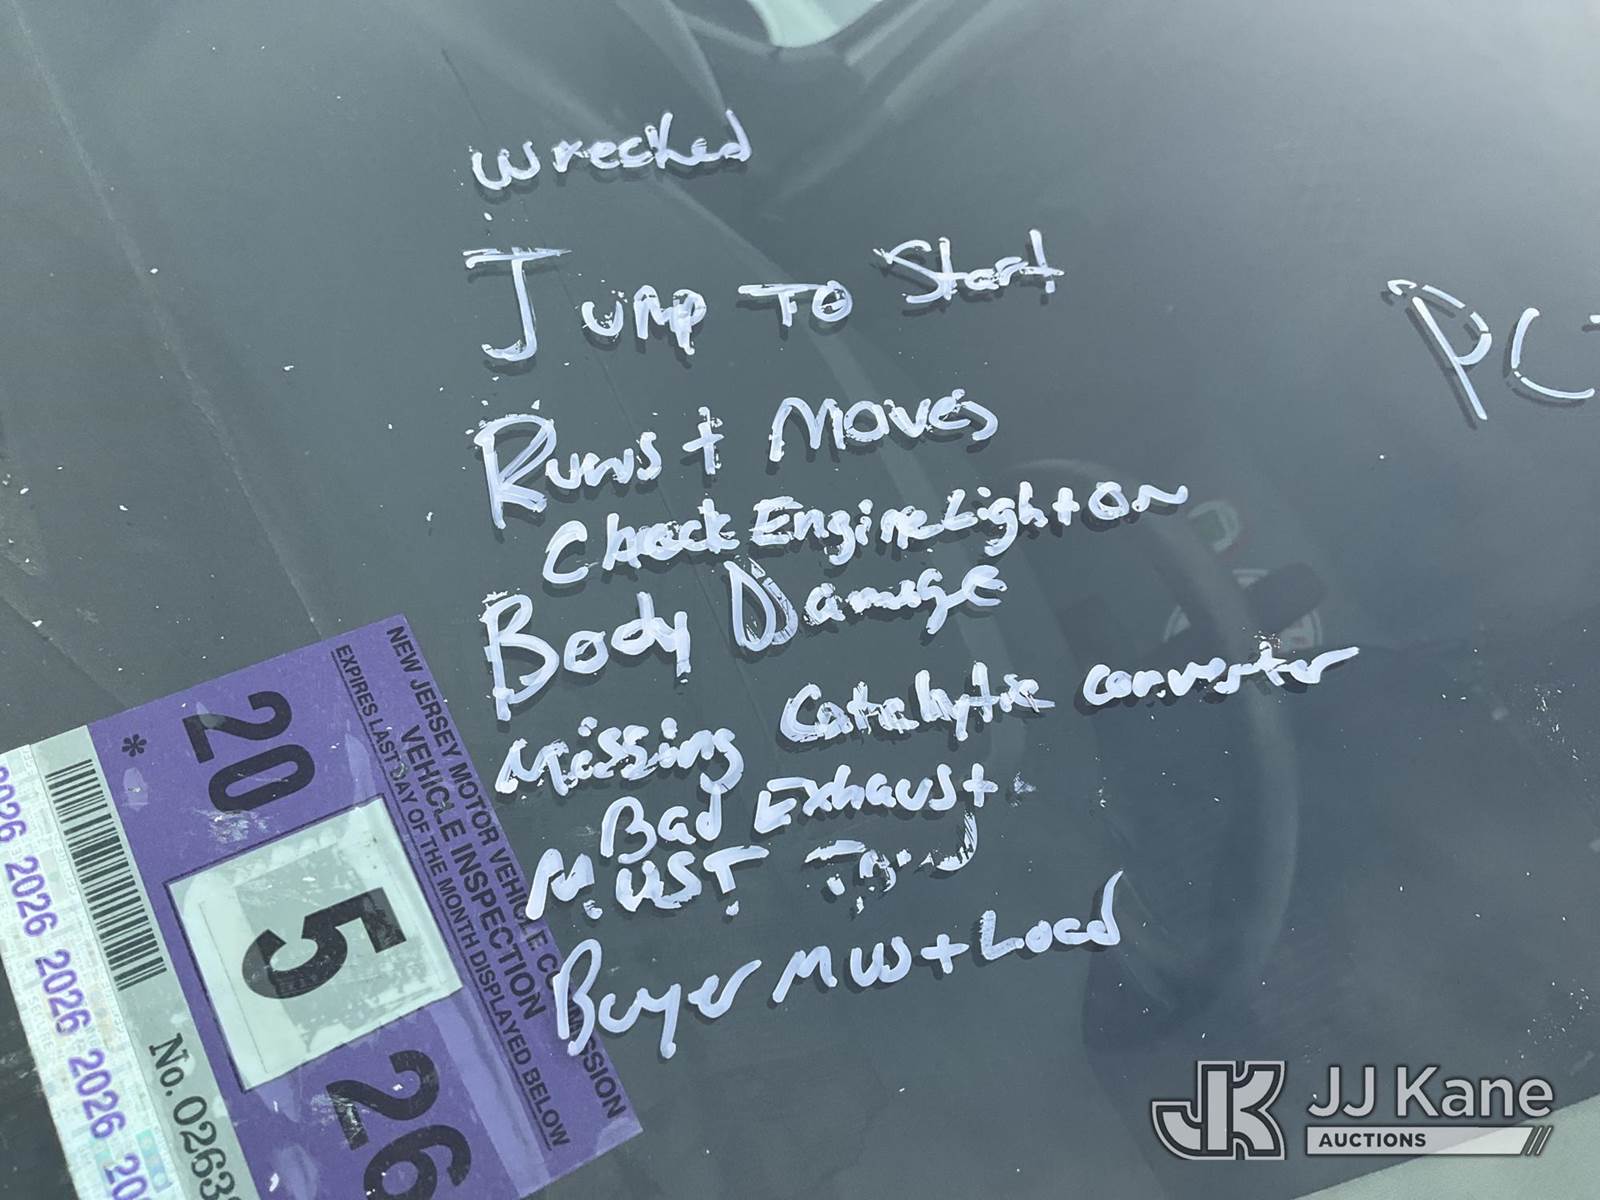 wrecked
Jump To Start
Runs + Moves
Check Engine Light On
Body Damage
Missing Catalytic Converter
Bad Exhaust
MUST
Buyer Must Load
PC
NEW JERSEY MOTOR VEHICLE COMMISSION
VEHICLE INSPECTION
EXPIRES LAST DAY OF THE MONTH DISPLAYED BELOW
*
20 26
5
No. 0263
2026 2026 2026 2026 2026
JJ Kane
AUCTIONS